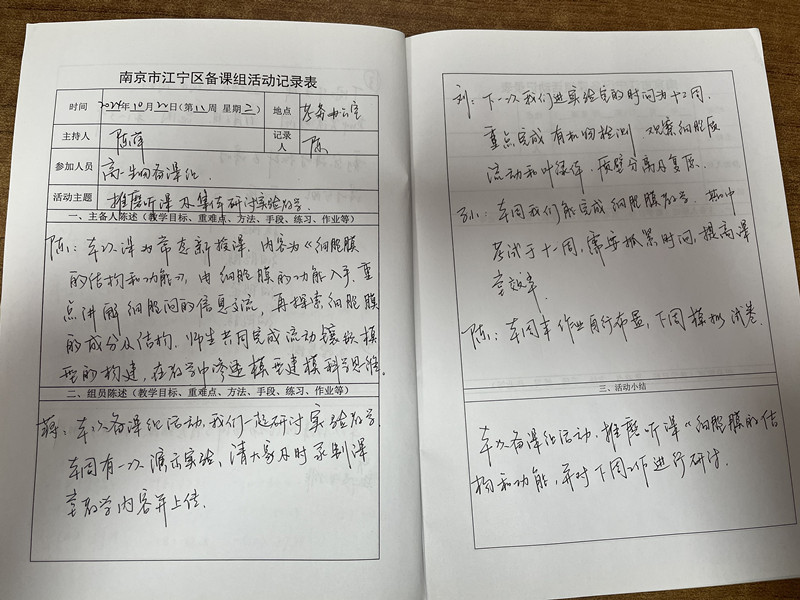 南京市江宁区备课组活动记录表
时间 2024年10月22日(第八周 星期二) 地点 教务办公室
主持人 陈萍 记录人 陈
参加人员 高一生物备课组.
活动主题 推磨听课及集体研讨实验教学
一、主备人陈述(教学目标、重难点、方法、手段、练习、作业等)
陈: 本次课为常态新授课, 内容为《细胞膜
的结构和功能》, 由细胞膜的功能入手, 重
点讲解细胞间的信息交流, 再探索细胞膜
的成分及结构. 师生共同完成流动镶嵌模
型的构建, 在教学中渗透模型建模科学思维.
二、组员陈述(教学目标、重难点、方法、手段、练习、作业等)
蒋: 本次备课组活动, 我们一起研讨实验教学.
本周有一次演示实验, 请大家及时录制课
堂教学内容并上传.
刘: 下一次我们进实验室的时间为十二周.
重点完成有机物检测 观察细胞质
流动和叶绿体, 质壁分离及复原.
本周我们能完成细胞膜教学. 期中
考试于十一周, 需要抓紧时间, 提高课
堂效率.
陈: 本周末作业自行布置, 下周模拟试卷.
三、活动小结
本次备课组活动, 推磨听课《细胞膜的结
构和功能》, 并对下周工作进行研讨.